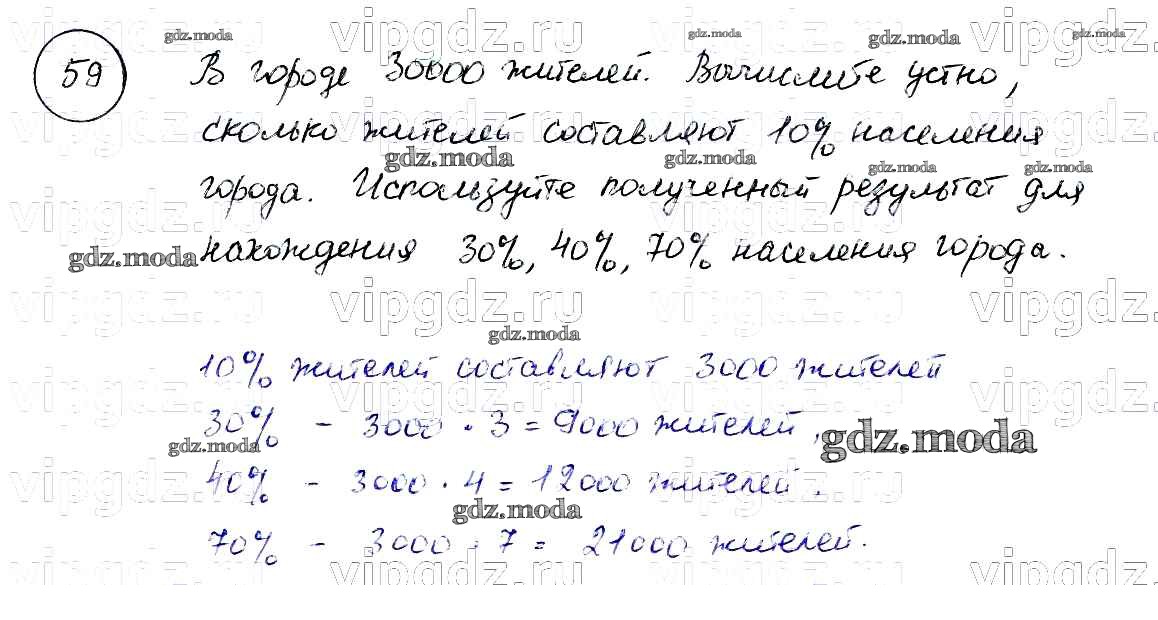 59 В городе 30000 жителей. Вычислите устно,
сколько жителей составляют 10% населения
города. Используйте полученный результат для
нахождения 30%, 40%, 70% населения города.
10% жителей составляют 3000 жителей
30% - 3000 · 3 = 9000 жителей,
40% - 3000 · 4 = 12000 жителей.
70% - 3000 · 7 = 21000 жителей.
vipgdz.ru
gdz.moda